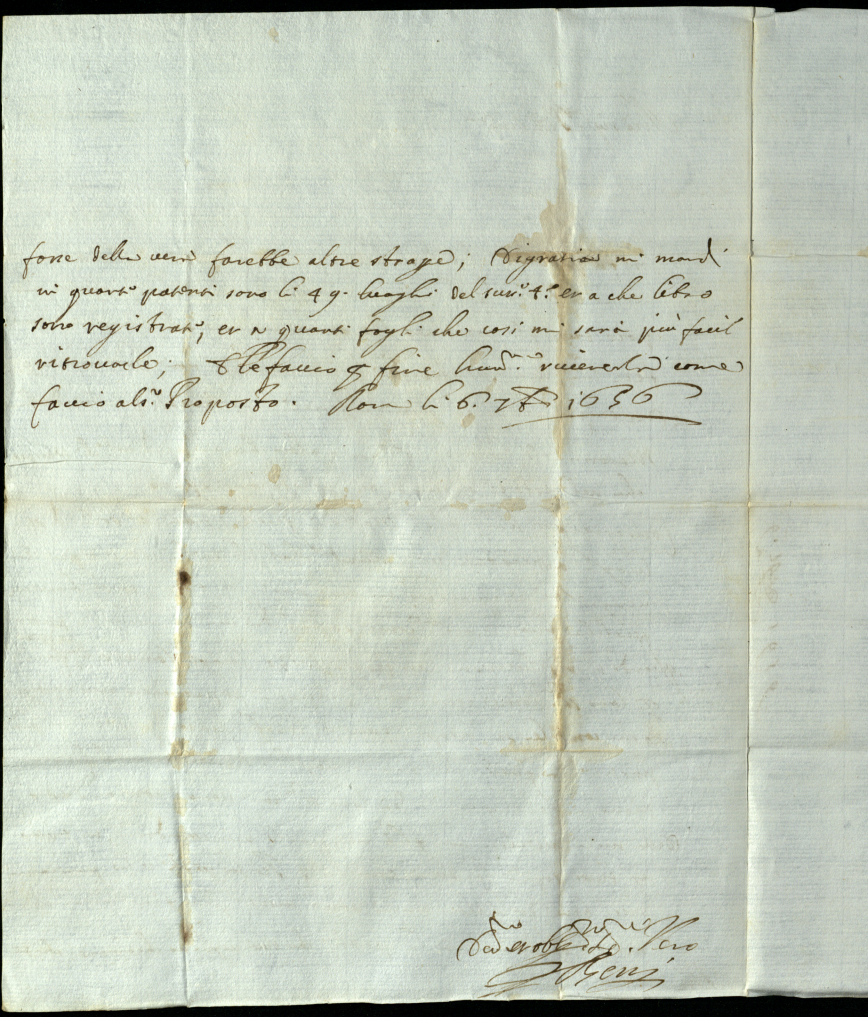 forse della verrà sarebbe altre strage; Digratia mi mandi
in quanti patenti sono li 49. luoghi del sur.º 4.º et a che libro
sono registrati, et a quanti fogli che così mi sarà più facil
ritrovarle; le faccio fine hum.te riverenza come
faccio al s.r Proposto. Roma li 6. 7bre 1656
Dev.mo et obblig.mo Vero